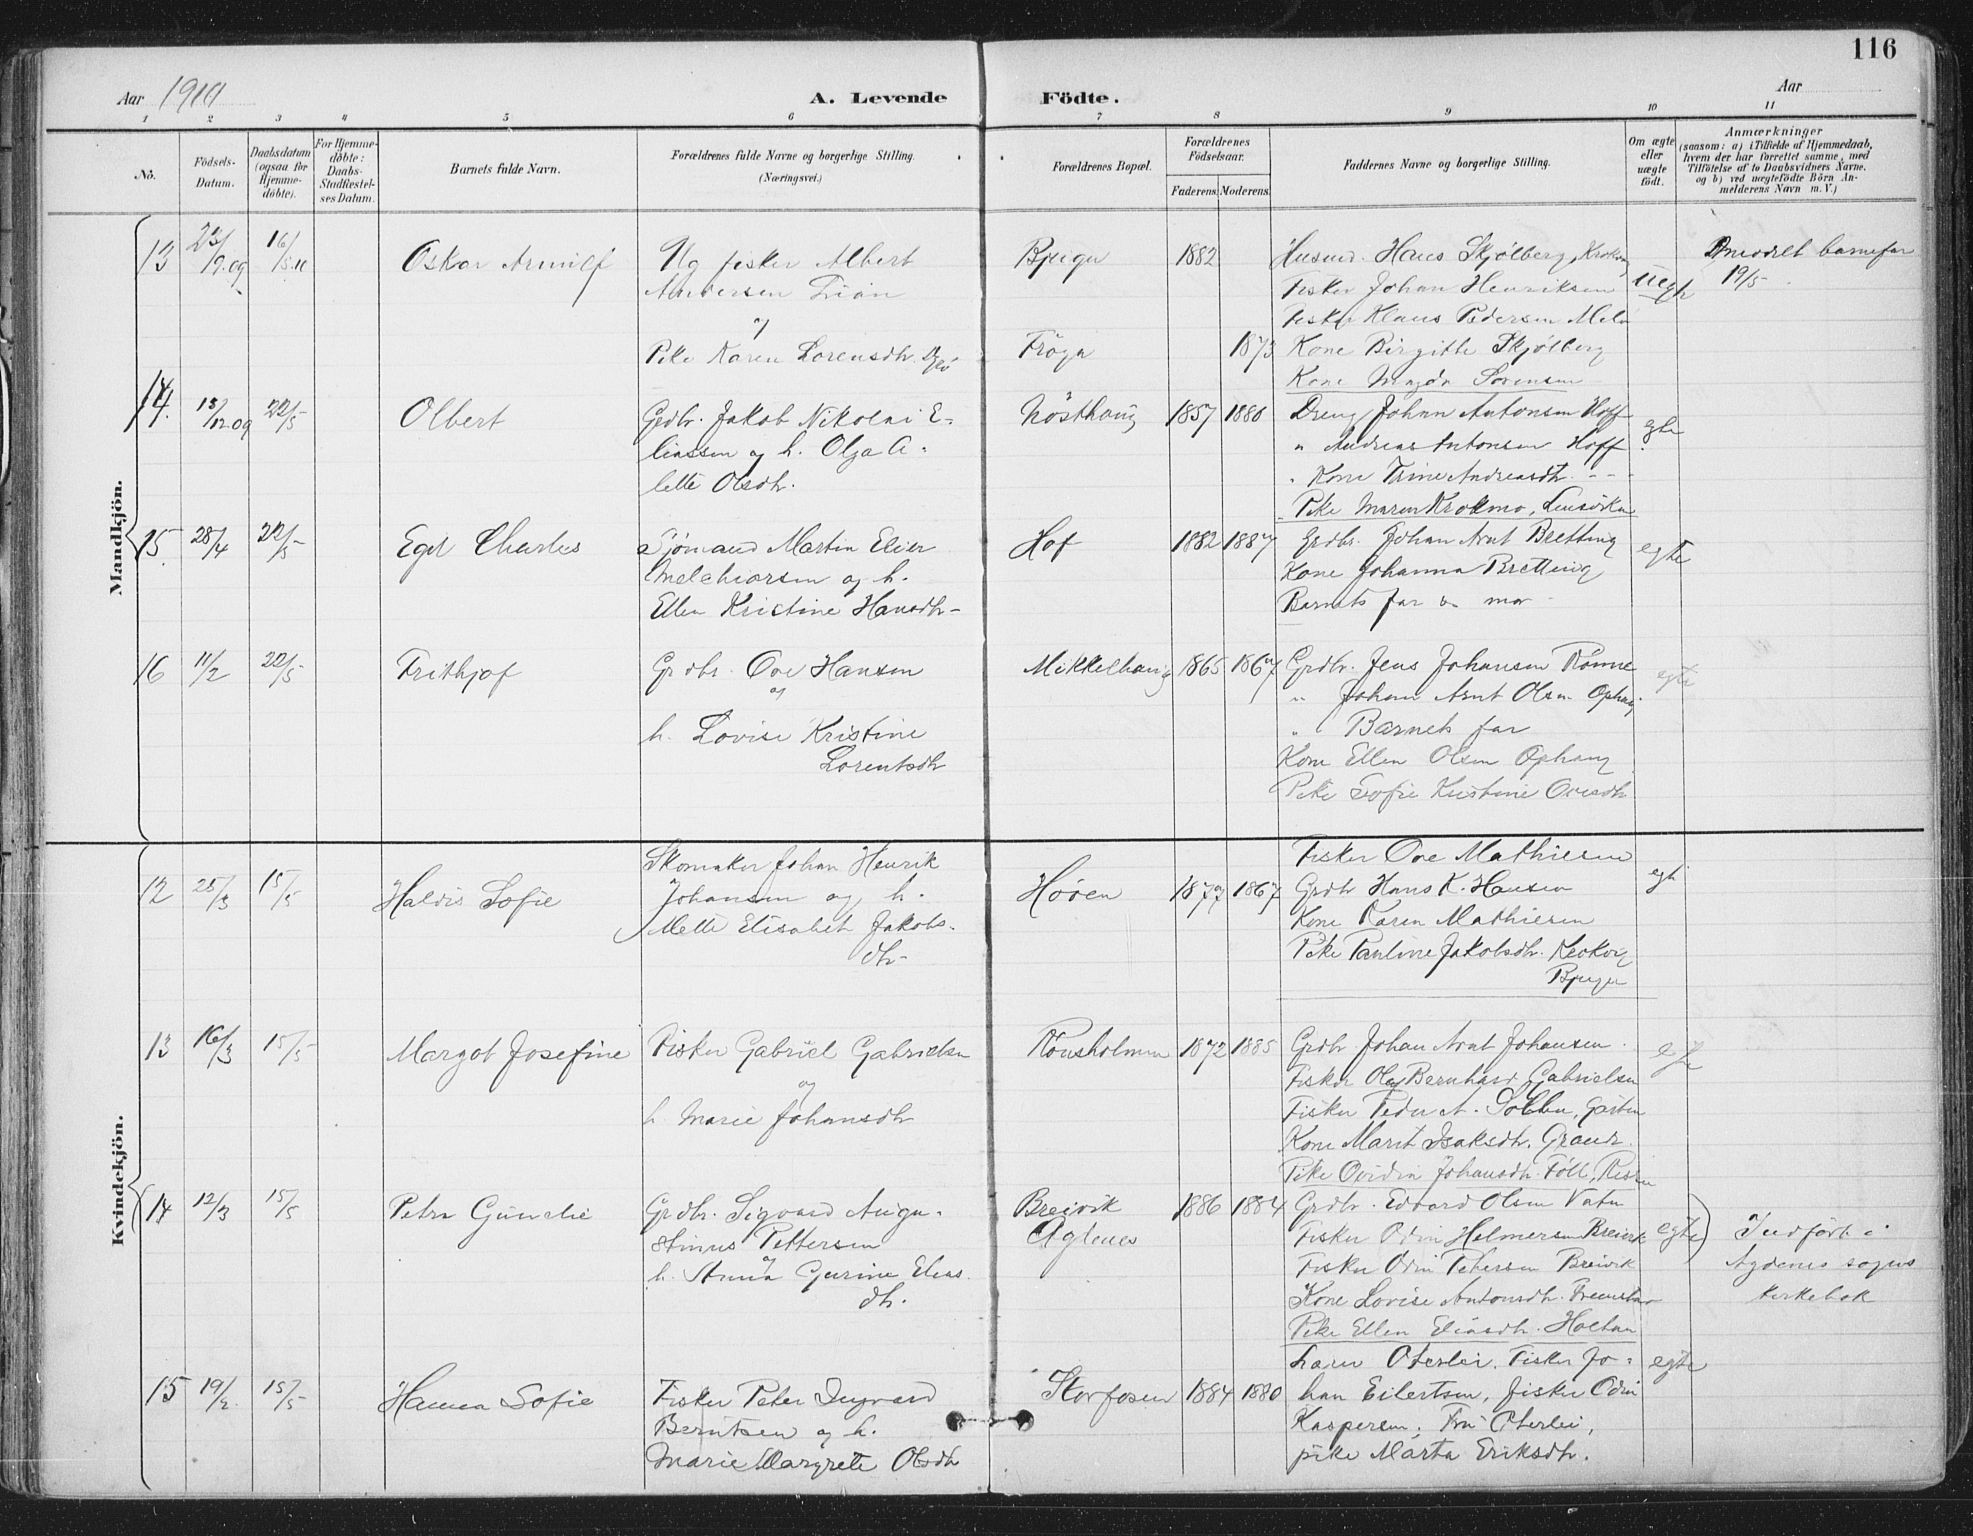 116
Aar 1910
A. Levende Födte.
Aar
1 2 3 4 5 6 7 8 9 10 11
No.
Födsels-Datum.
Daabsdatum (ogsaa for Hjemme-døbte).
For Hjemme-døbte: Daabs-Stadfæstel-ses Datum.
Barnets fulde Navn.
Forældrenes fulde Navne og borgerlige Stilling.
(Næringsvei.)
Forældrenes Bopæl.
Forældrenes Födselsaar.
Faderens. Moderens.
Faddernes Navne og borgerlige Stilling.
Om ægte eller uægte født.
Anmærkninger
(saasom: a) i Tilfælde af Hjemmedaab,
hvem der har forrettet samme, med
Tilföielse af to Daabsvidners Navne.
og b) ved uægtefödte Börn An-
melderens Navn m. V.)
Mandkjön.
13 23/ 19.09 16/
Oskar Arnulf
Ug fisker Albert
Andersen
og
Pike Karen Lorensdtr.
Bjugn
Fröya
1882
1873
Husmd. Hans Skjølberg,
Fisker Johan Henriksen
Fisker Klaus Pedersen
Kone Birgitte Skjølberg
Kone Magda Sorensen
uegte
barnefar
19/5
14. 18/12.09 22/5
Olbert
Grdbr. Jakob Nikolai E-
liassen og h. Olga A-
lette Olsdtr.
Nösthaug
1857
Dreng Johan Antonsen Hoff
" Andreas Antonsen Hoff
" Kone Trine Andreasdtr. - - -
Pike Maren Krokmo,
egte
15 28/4 22/5
Egil Charles
Sjömand Martin Elier
Melchiorsen og h.
Ellen Kristine Hansdtr-
Hof
1882 1887
Grdbr. Johan Arnt Bretting
Kone Johanna Bretting
Barnets far og mor
egte
16 11/2 22/5
Frithjof
Grdbr. Ove Hansen
og
h. Lovise Kristine
Lorentsdtr
Mikkelhaug
1865 1867
Grdbr. Jens Johansen Rönne
" Johan Arnt Olsen Ophaug
" Barnets far
Kone Ellen Olsen Ophaug
Pike Sofie Kristine Ovesdtr
egte
Kvindekjön.
12 25/3 15/5
Haldis Sofie
Skomaker Johan Henrik
Johansen og h.
Mette Elisabet Jakobs-
dtr-
Hoven
1877 1867
Fisker Ove Mathiesen
Grdbr Hans K. Hansen
Kone Karen Mathiesen
Pike Pauline Jakobsdtr.
Bjugn
egte
13 16/3 15/5
Margot Josefine
Fisker Gabriel Gabrielsen
og
h. Marie Johansdtr
1872 1885
Grdbr Johan Arnt Johansen.
Fisker Ole Bernhard Gabrielsen
Fisker Peder A. Solli
Kone Marit Isaksdtr.
Pike Ovidia Johansdtr.
egte
14 12/3 15/5
Petra Gunelie
Grdbr. Sigvard Augu-
stinus Pettersen
og
h. Anna Gurine Elias
dtr.
Breivik
Agdenes
1886 1884
Grdbr. Edvard Olsen Vatn
Fisker Odin Helmersen Breivik
Fisker Odin Petersen Breivik
Kone Lovise Antonsdtr.
Pike Ellen Eliasdtr.
egte
Indfört i
Agdenes sogns
kirkebok
15 19/2 15/5
Hanna Sofie
Fisker Peter Ingvard
Berntsen og h.
Marie Margrete Olsdtr
Storfosen
1884 1880
Lærer Oterlei. Fisker Jo-
han Eilertsen, fisker Odin
Kaspersen, Fru Oterlei,
pike Marta Eriksdtr.
egte